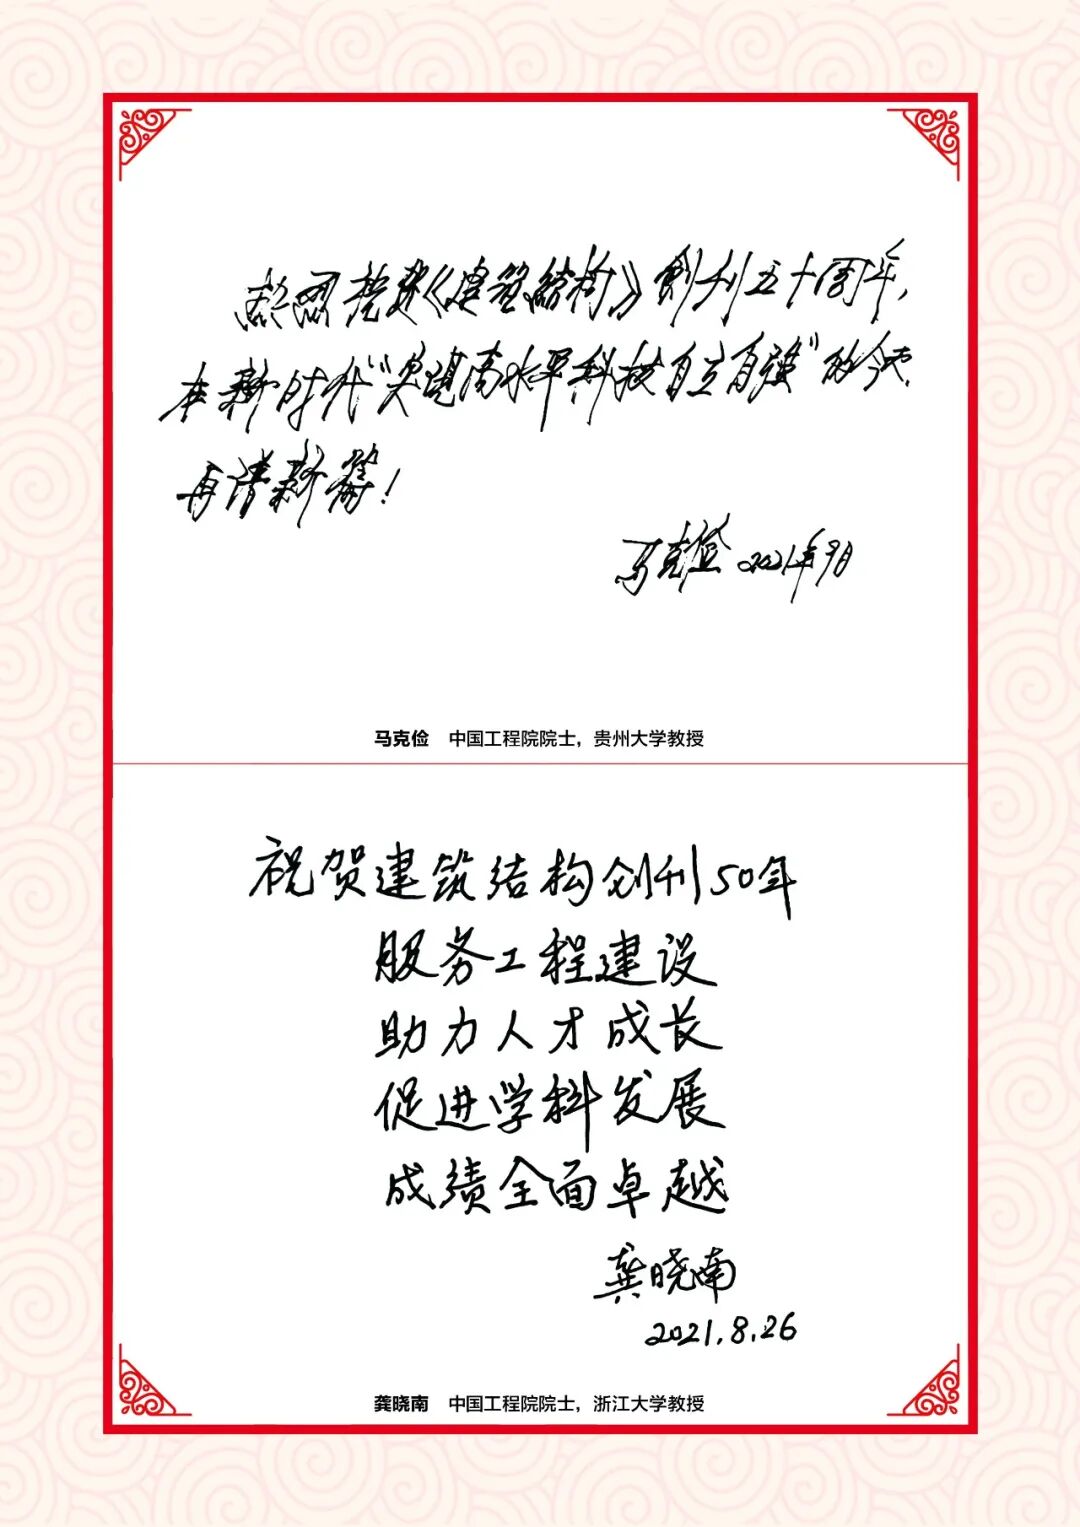 热烈祝贺《建筑结构》創刊五十周年，
在新时代“实现高水平科技自立自强”的今天，
再谱新篇！
马克俭 2021年9月
马克俭 中国工程院院士，贵州大学教授
祝贺建筑结构创刊50年
服务工程建设
助力人才成长
促进学科发展
成绩全面卓越
龚晓南
2021.8.26
龚晓南 中国工程院院士，浙江大学教授